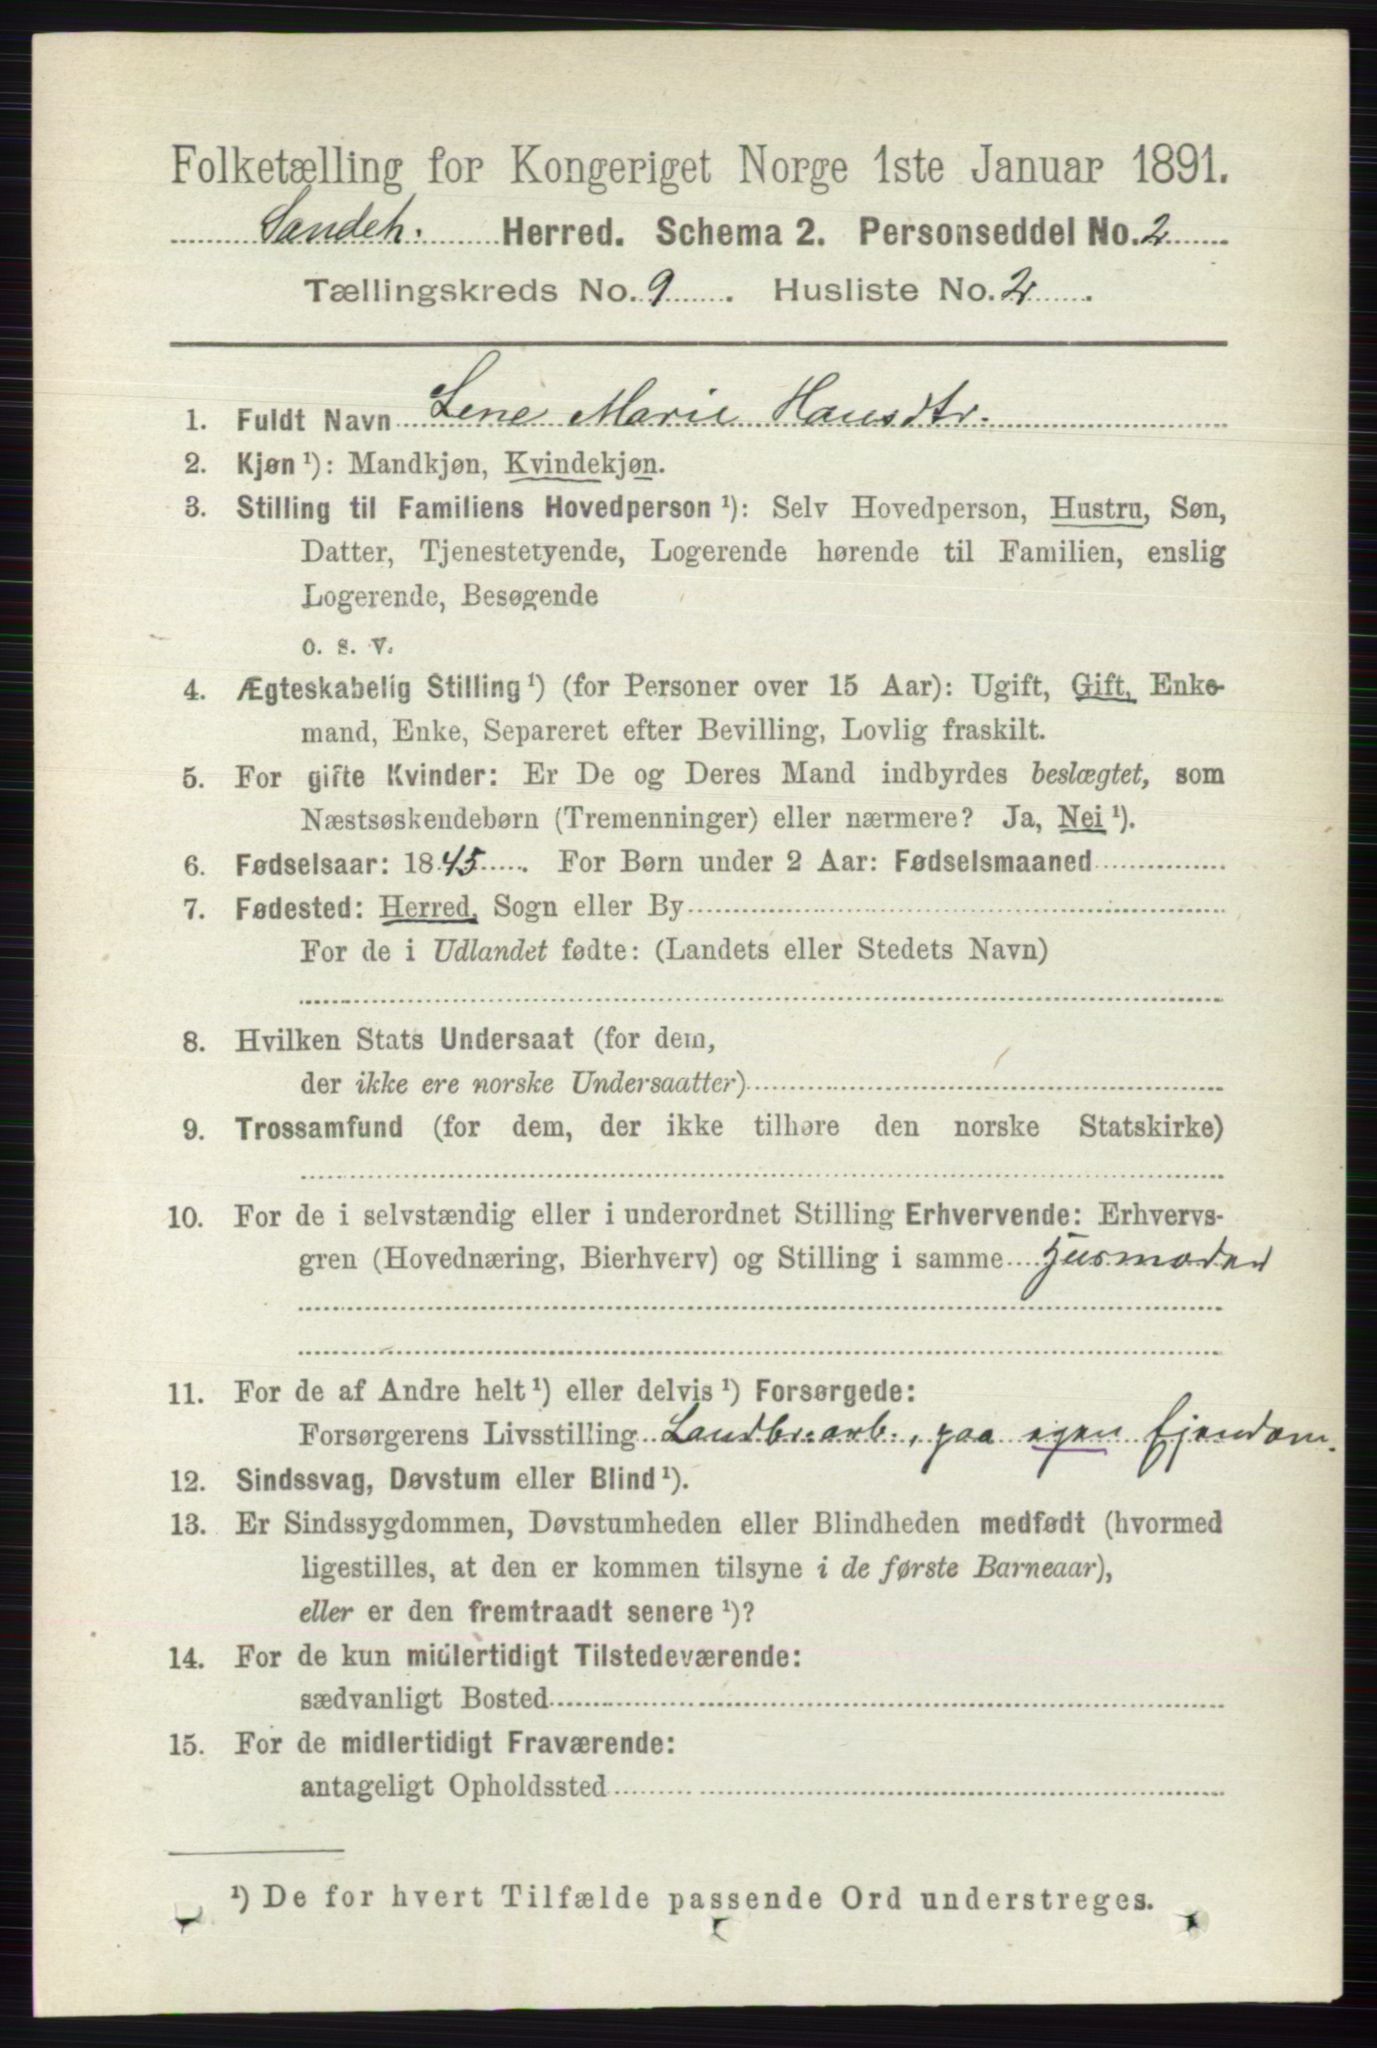 Folketælling for Kongeriget Norge 1ste Januar 1891.
Sandeh. Herred. Schema 2. Personseddel No. 2
Tællingskreds No. 9. Husliste No. 2.
1. Fuldt Navn Lene Marie Hansdtr.
2. Kjøn ¹): Mandkjøn, Kvindekjøn.
3. Stilling til Familiens Hovedperson ¹): Selv Hovedperson, Hustru, Søn,
Datter, Tjenestetyende, Logerende hørende til Familien, enslig
Logerende, Besøgende
o. s. v.
4. Ægteskabelig Stilling ¹) (for Personer over 15 Aar): Ugift, Gift, Enke-
mand, Enke, Separeret efter Bevilling, Lovlig fraskilt.
5. For gifte Kvinder: Er De og Deres Mand indbyrdes beslægtet, som
Næstsøskendebørn (Tremenninger) eller nærmere? Ja, Nei ¹).
6. Fødselsaar: 1845. For Børn under 2 Aar: Fødselsmaaned
7. Fødested: Herred, Sogn eller By
For de i Udlandet fødte: (Landets eller Stedets Navn)
8. Hvilken Stats Undersaat (for dem,
der ikke ere norske Undersaatter)
9. Trossamfund (for dem, der ikke tilhøre den norske Statskirke)
10. For de i selvstændig eller i underordnet Stilling Erhvervende: Erhvervs-
gren (Hovednæring, Bierhverv) og Stilling i samme Husmoder
11. For de af Andre helt ¹) eller delvis ¹) Forsørgede:
Forsørgerens Livsstilling Landbr.arb., paa egen Ejendom.
12. Sindssvag, Døvstum eller Blind ¹).
13. Er Sindssygdommen, Døvstumheden eller Blindheden medfødt (hvormed
ligestilles, at den er kommen tilsyne i de første Barneaar),
eller er den fremtraadt senere ¹)?
14. For de kun midlertidigt Tilstedeværende:
sædvanligt Bosted
15. For de midlertidigt Fraværende:
antageligt Opholdssted
¹) De for hvert Tilfælde passende Ord understreges.